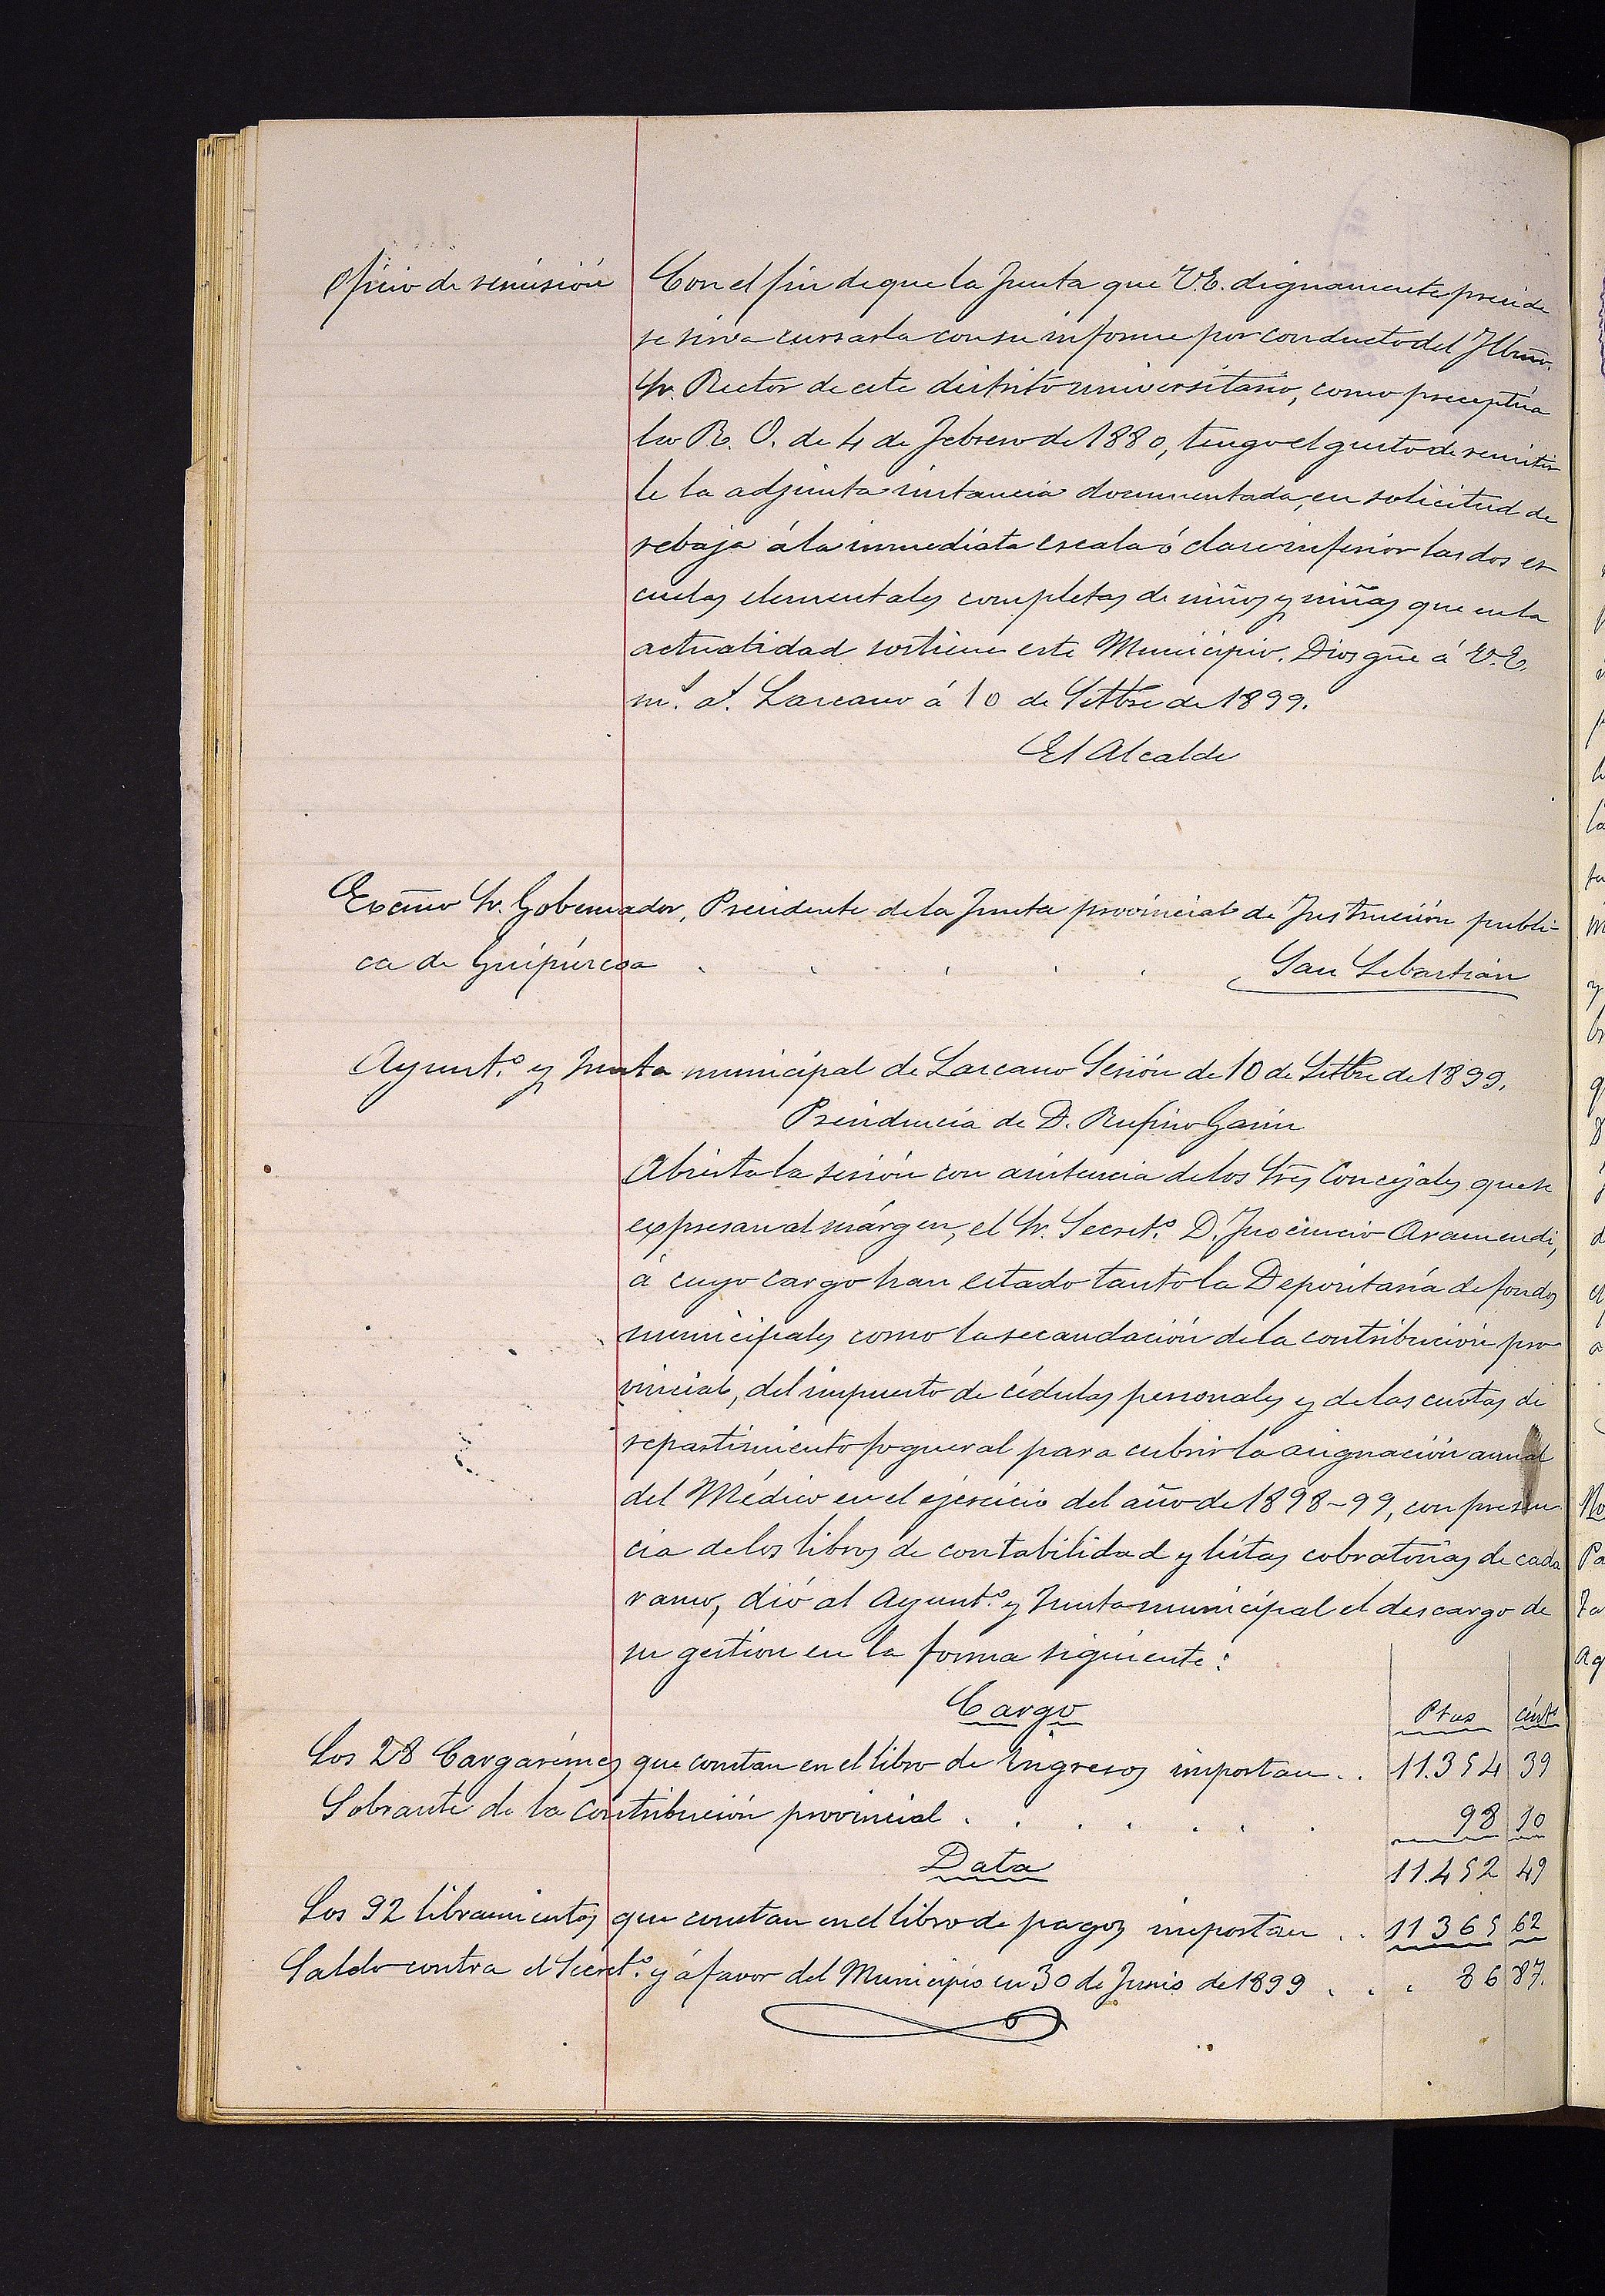 Oficio de remisión
Con el fin de que la Junta que V.E. dignamente preside
se sirva cursarla con su informe por conducto del Iltmo.
Sr. Rector de este distrito universitario, como preceptúa
la R. O. de 4 de Febrero de 1880, tengo el gusto de remitir
le la adjunta instancia documentada, en solicitud de
rebaja á la inmediata escala ó clase inferior las dos es-
cuelas elementales completas de niños y niñas que en la
actualidad sostiene este Municipio. Dios gũe á V.E.
m.s a.s Lazcano á 10 de Setbre de 1899.
El Alcalde
Excmo Sr. Gobernador, Presidente de la Junta provincial de Instrucción públi-
ca de Guipúzcoa . . . . . San Sebastián
Ayunt.o y Junta municipal de Lazcano Sesión de 10 de Setbre de 1899.
Presidencia de D. Rufino Garin
Abierta la sesión con asistencia de los Sres Concejales que se
expresan al márgen, el Sr. Secret.o D. Inocencio Aramendi,
á cuyo cargo han estado tanto la Depositaría de fondos
municipales como la recaudación de la contribución pro-
vincial, del impuesto de cédulas personales y de las cuotas de
repartimiento fogueral para cubrir la asignación anual
del Médico en el ejercicio del año de 1898-99, con presen-
cia de los libros de contabilidad y listas cobratorias de cada
ramo, dió al Ayunt.o y Junta municipal el descargo de
su gestión en la forma siguiente:
Cargo Ptas cénts
Los 28 Cargarémes que constan en el libro de Ingresos importan . . 11.354 39
Sobrante de la contribución provincial . . . . . . . 98 10
Data 11.452 49
Los 92 libramientos que constan en el libro de pagos importan . . 11 365 62
Saldo contra el Secret.o y á favor del Municipio en 30 de Junio de 1899 . . . 86 87.